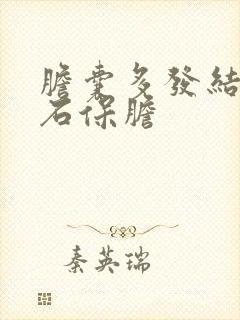 膽囊多發結
石保膽
秦英瑞